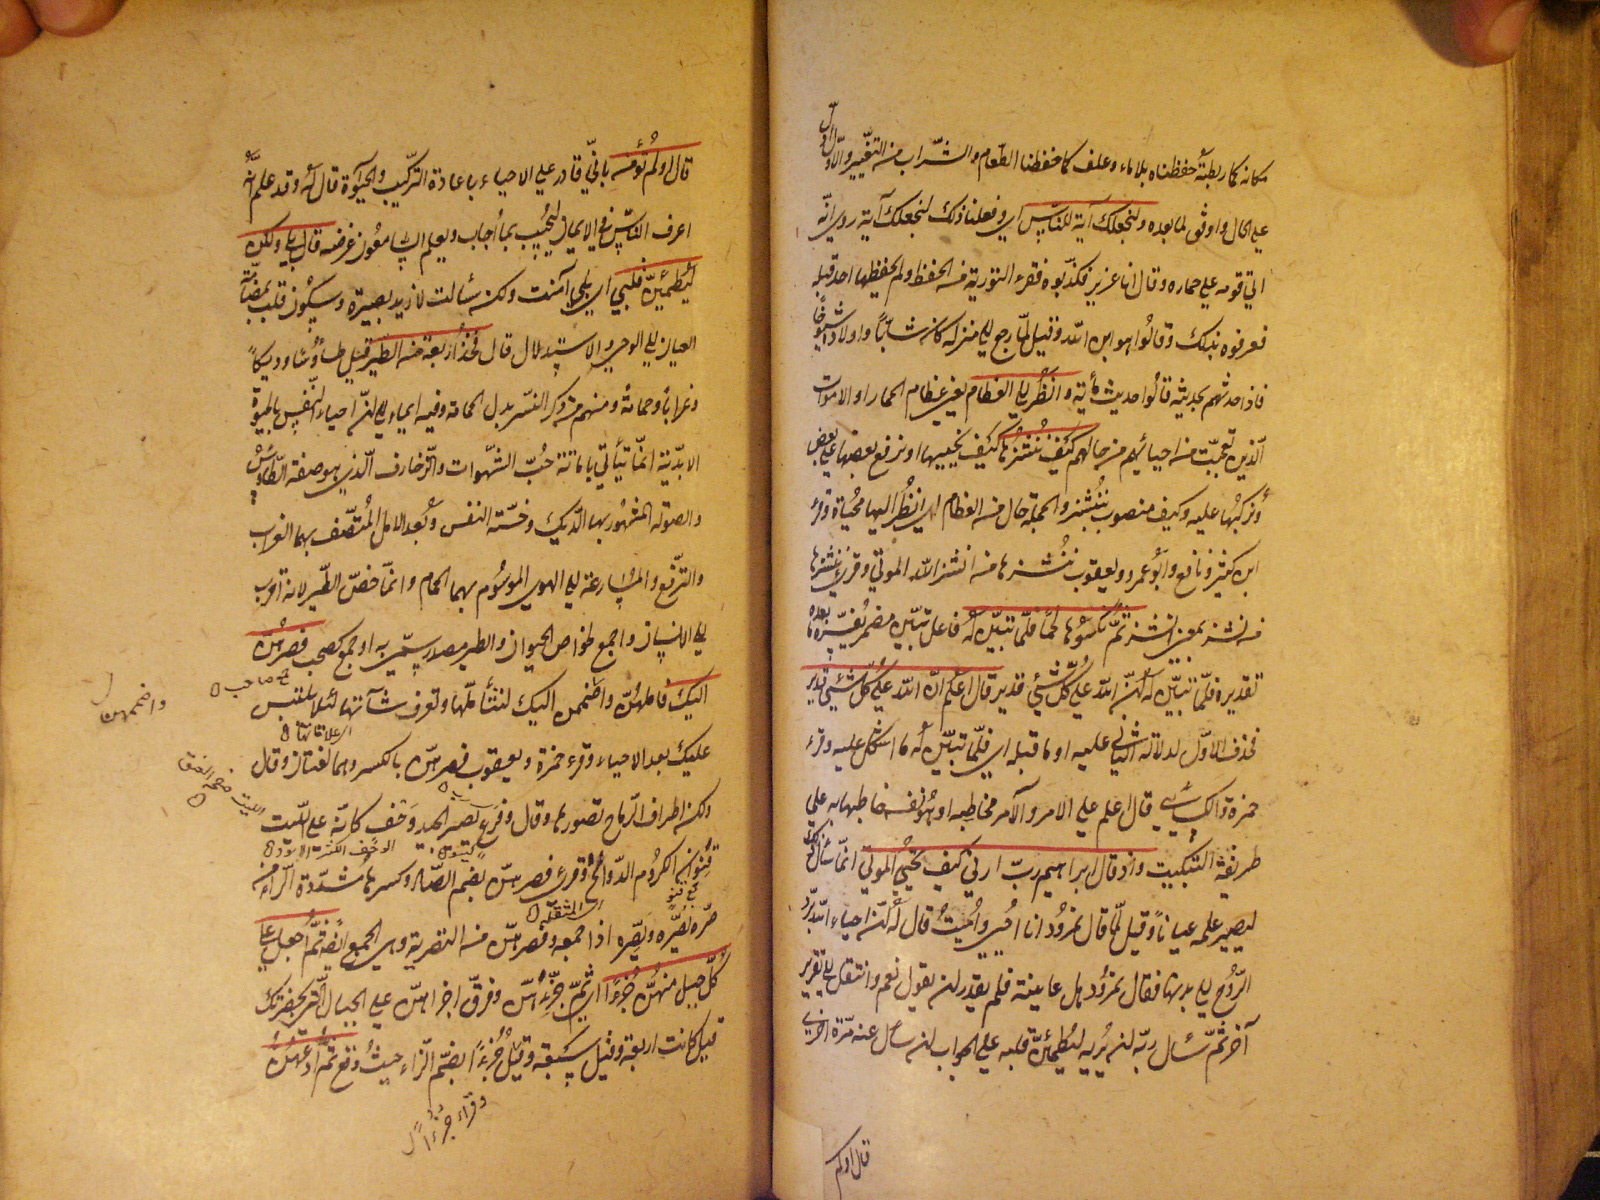 مكانه كما ربطته حفظناه بلا ماء وعلف كما حفظنا الطعام والشراب من التغيير والاول ادل
على الحال واوفق لما بعده ولنجعلك آية للناس اي وفعلنا ذلك لنجعلك آية روي انه
اتى قومه على حماره وقال انا عزير فكذبوه فقرء التورية من الحفظ ولم يحفظها احد قبله
فعرفوه بذلك وقالوا هو ابن الله وقيل لما رجع الى منزله كان شابا واولاده شيوخا
فاذا حدثهم بحديث قالوا حديث مأية وانظر الى العظام يعني عظام الحمار او الاموات
الذين تعجب من احيائهم كيف ننشزها كيف نحييها او نرفع بعضها على بعض
ونركبها عليه وكيف منصوب بننشز والجملة حال من العظام اي انظر اليها محياة وقرء
ابن كثير ونافع وابو عمرو ويعقوب ننشرها من انشر الله الموتى وقرئ ننشرها
من نشر بمعنى انشر ثم نكسوها لحما فلما تبين له فاعل تبين مضمر يفسره ما بعده
تقديره فلما تبين له ان الله على كل شيئ قدير قال اعلم ان الله على كل شيئ قدير
فحذف الاول لدلالة الثاني عليه او ما قبله اي فلما تبين له ما اشكل عليه وقرء
حمزة والكسائي قال اعلم على الامر والآمر مخاطبه او هو نفسه خاطبها به على
طريقة التبكيت واذ قال ابراهيم رب ارني كيف تحيي الموتى انما سأل ذلك
ليصير علمه عيانا وقيل لما قال نمرود انا احيي واميت قال له ان احياء الله برد
الروح الى بدنها فقال نمرود هل عاينته فلم يقدر ان يقول نعم وانتقل الى تقرير
آخر ثم سأل ربه ان يريه ليطمئن قلبه على الجواب ان سئل عنه مرة اخرى
قال اولم
قال اولم تؤمن باني قادر على الاحياء باعادة التركيب والحيوة قال له وقد علم انه
اعرف الناس في الايمان ليجيب بما أجاب ويعلم السامعون غرضه قال بلى ولكن
ليطمئن قلبي اي بلى آمنت ولكن سألت لازيد بصيرة وسكون قلب بمضامة
العيان الى الوحي والاستدلال قال فخذ أربعة من الطير قيل طاؤسا وديكا
وغرابا وحمامة ومنهم من ذكر النسر بدل الحمامة وفيه ايماء الى ان احياء النفس بالحيوة
الابدية انما يتأتى باماتة حب الشهوات والزخارف الذي هو صفة الطاوس
والصولة المشهور بها الديك وخسة النفس وبعد الامل المتصف بهما الغراب
والترفع والمسارعة الى الهوى الموسوم بهما الحمام وانما خص الطير لانه اقرب
الى الانسان واجمع لخواص الحيوان والطير مصدر سمي به او جمع كصحب فصرهن
جمع صاحب
اليك فاملهن واضممهن اليك لتتأملها وتعرف شآتها لئلا يلتبس
واضممهن
اي علاماتها
عليك بعد الاحياء وقرء حمزة ويعقوب فصرهن بالكسر وهما لغتان وقال
ولكن اطراف الرماح تصورها وقال وفرع يصير الجيد وحف كانه على الليت
الليت صفحة العنق
قنوان الكروم الدوالح وقرئ فصرهن بضم الصاد وكسرها مشددة الراء من
جمع قنو
اي المثقلة
صره يصره ويصره اذا جمعه وفصرهن من التصرية وهي الجمع ايضا ثم اجعل على
كل جبل منهن جزءا اي ثم جزئهن وفرق اجزاءهن على الجبال التي بحضرتك
قيل كانت اربعة وقيل سبعة وقيل جزءا بضم الزاء حيث وقع ثم ادعهن